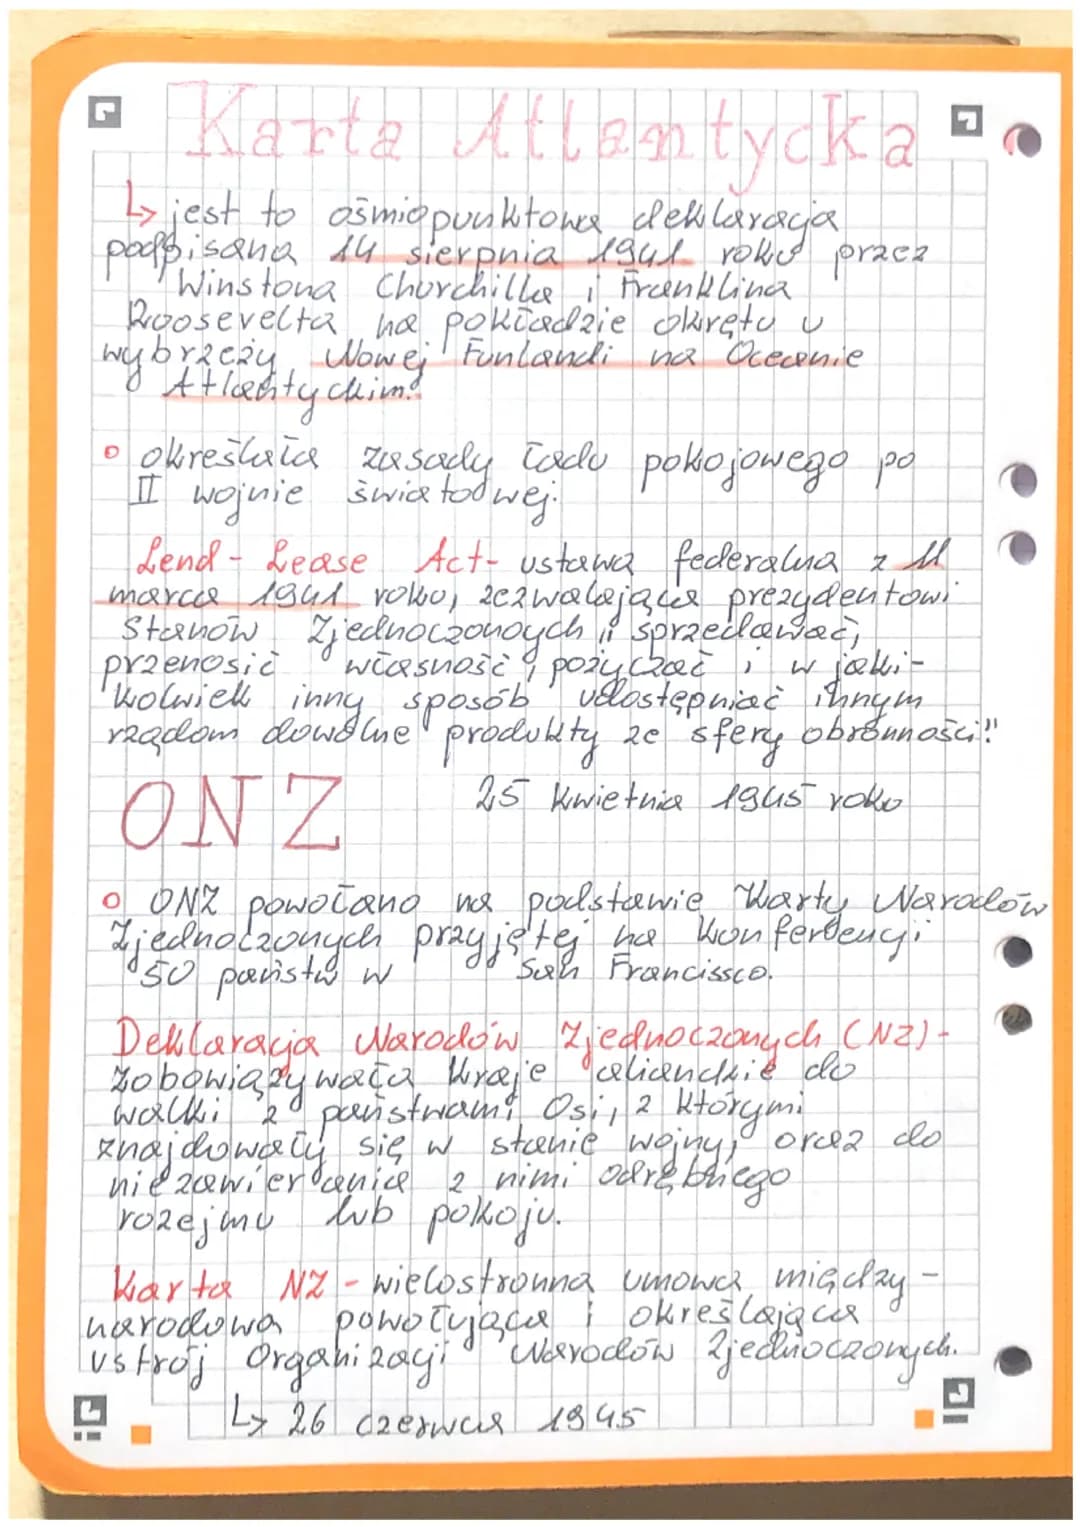 Karta Atlantycka
↳ jest to ośmiopunktowa deklaracja
podpisana 14 sierpnia 1941 roku przez
Winstona Churchilla i Franklina
Roosevelta na pokładzie okrętu u
wybrzeży Nowej Funlandi na Oceanie
Atlantyckim.
o określała zasady ładu pokojowego po
II wojnie światowej.
Lend-Lease Act- ustawa federalna z 11
marca 1941 roku, zezwalająca prezydentowi
Stanów Zjednoczonoych „sprzedawać,
przenosić własność, pożyczać i w jaki-
kolwiek inny sposób udostępniać innym
rządom dowolne produkty ze sfery obronności"
ONZ 25 kwietnia 1945 roku
o ONZ powołano na podstawie Karty Narodów
Zjednoczonych przyjętej na konferencji
50 państw w San Francissco.
Deklaracja Narodów Zjednoczonych (NZ)-
zobowiązywała kraje aliandzkie do
walki z państwami Osi, z którymi
znajdowały się w stanie wojny, oraz do
niezawierania z nimi odrębnego
rozejmu lub pokoju.
Karta NZ - wielostronna umowa między-
narodowa powołująca i określająca
ustrój Organizacji Narodów Zjednoczonych.
↳ 26 czerwca 1945